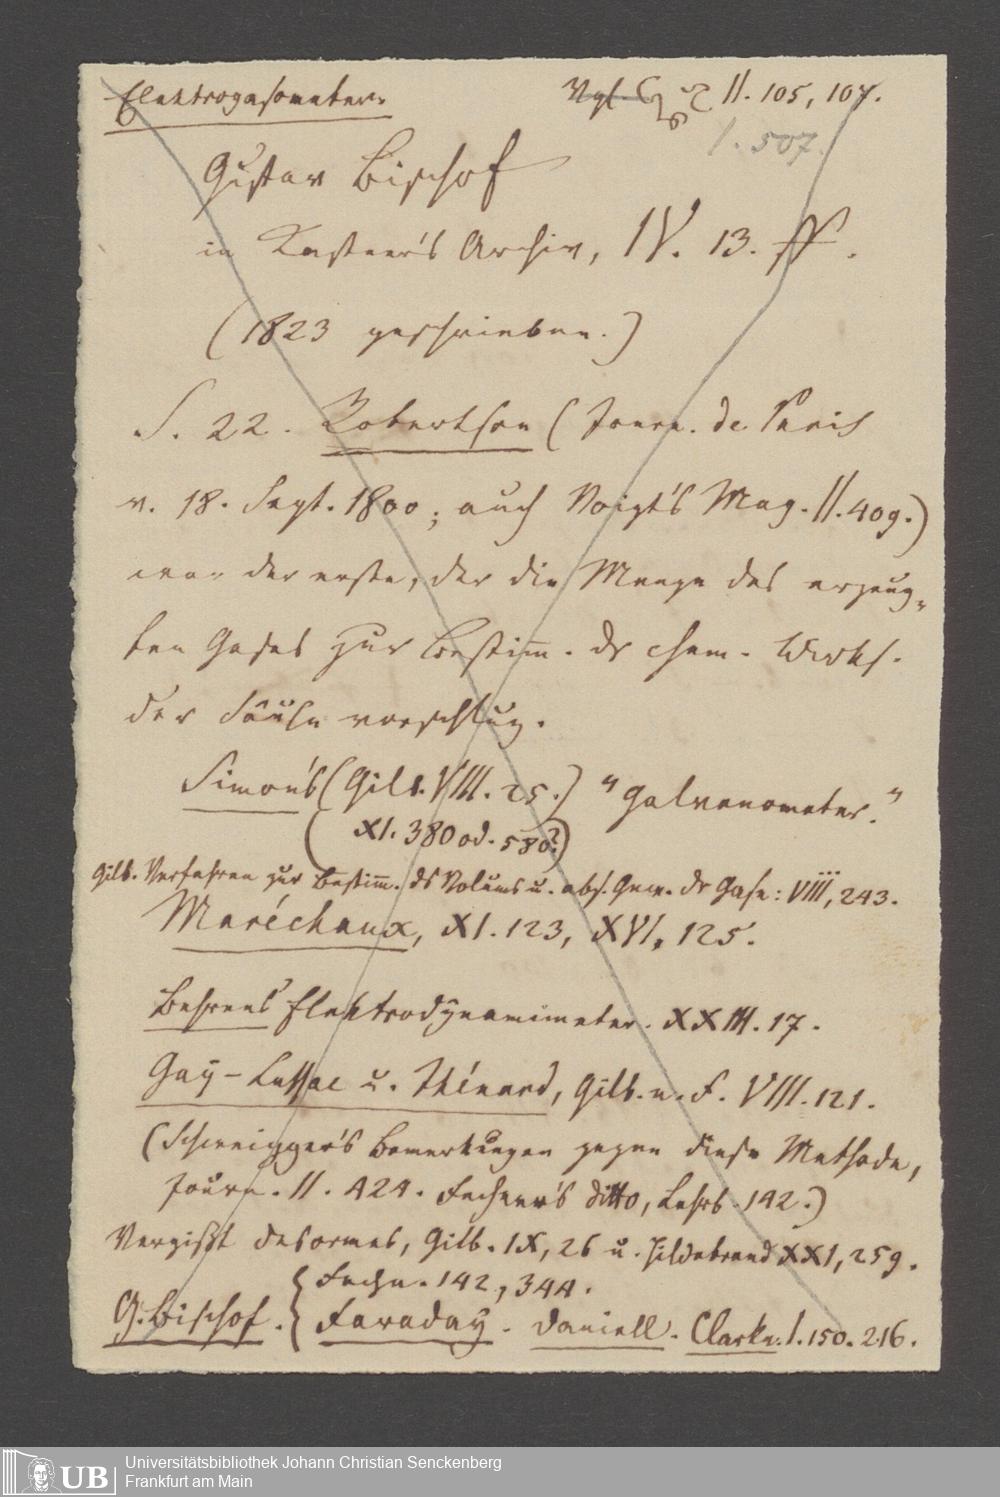 Elektrogasometer. Vgl. II. 105, 107.
I. 507.
Gustav Bischof
in Kastner's Archiv, IV. 13. ff.
(1823 geschrieben.)
S. 22. Robertson (Journ. de Paris
v. 18. Sept. 1800; auch Voigt's Mag. II. 409.)
war der erste, der die Menge des erzeug-
ten Gases zur Bestim̅. ds chem. Wirks.
der Säule vorschlug.
Simon's (Gilb. VIII. 25.) "Galvanometer."
(XI. 380 od. 580?)
Gilb. Verfahren zur Bestim̅. ds Volums u. abs. Gew. dr Gase: VIII, 243.
Maréchaux, XI. 123, XVI, 125.
Behrens' Elektrodynamimeter. XXIII. 17.
Gay-Lussac u. Thénard, Gilb. n. F. VIII. 121.
(Schweigger's Bemerkungen gegen diese Methode,
Journ. II. 424. Fechner's ditto, Lehrb. 142.)
Vergißt Desormes, Gilb. IX, 26 u. Hildebrand XXI, 259.
G. Bischof. { Fechn. 142, 344.
Faraday. Daniell. Clarke. I. 150. 216.
UB Universitätsbibliothek Johann Christian Senckenberg
Frankfurt am Main